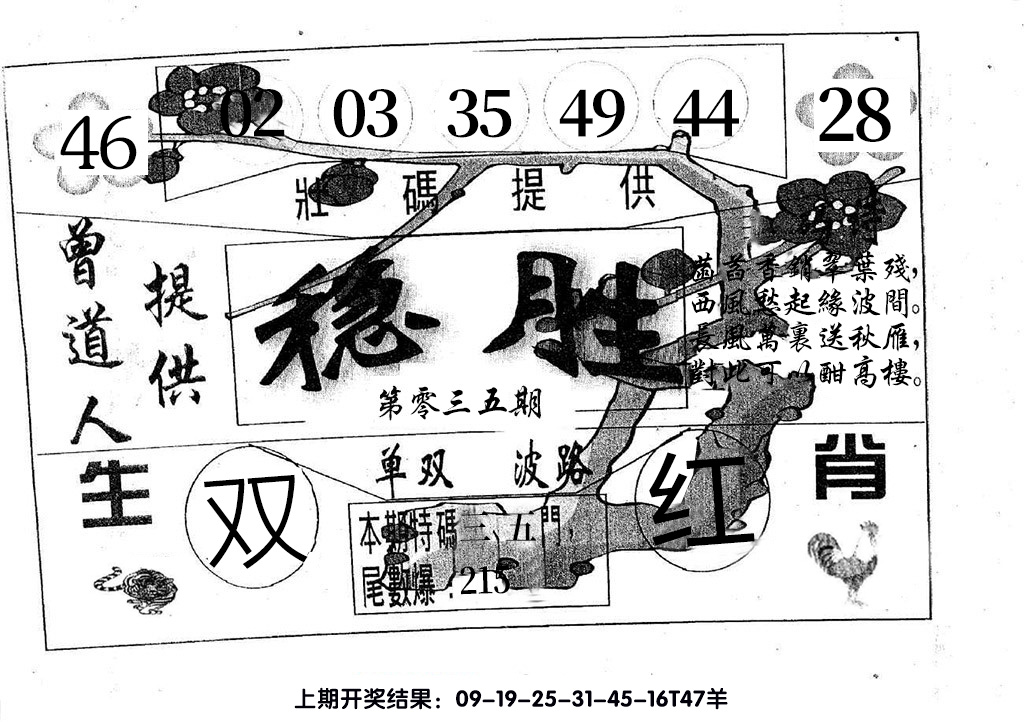 46 02 03 35 49 44 28
壯碼提供
曾道人
提供
稳胜
第零三五期
菡萏香銷翠葉殘,
西風愁起緣波間。
長風萬裏送秋雁,
對此可以酣高樓。
单双 波路
生肖
双 红
本期特碼三、五門,
尾數爆:215
上期开奖结果：09-19-25-31-45-16T47羊